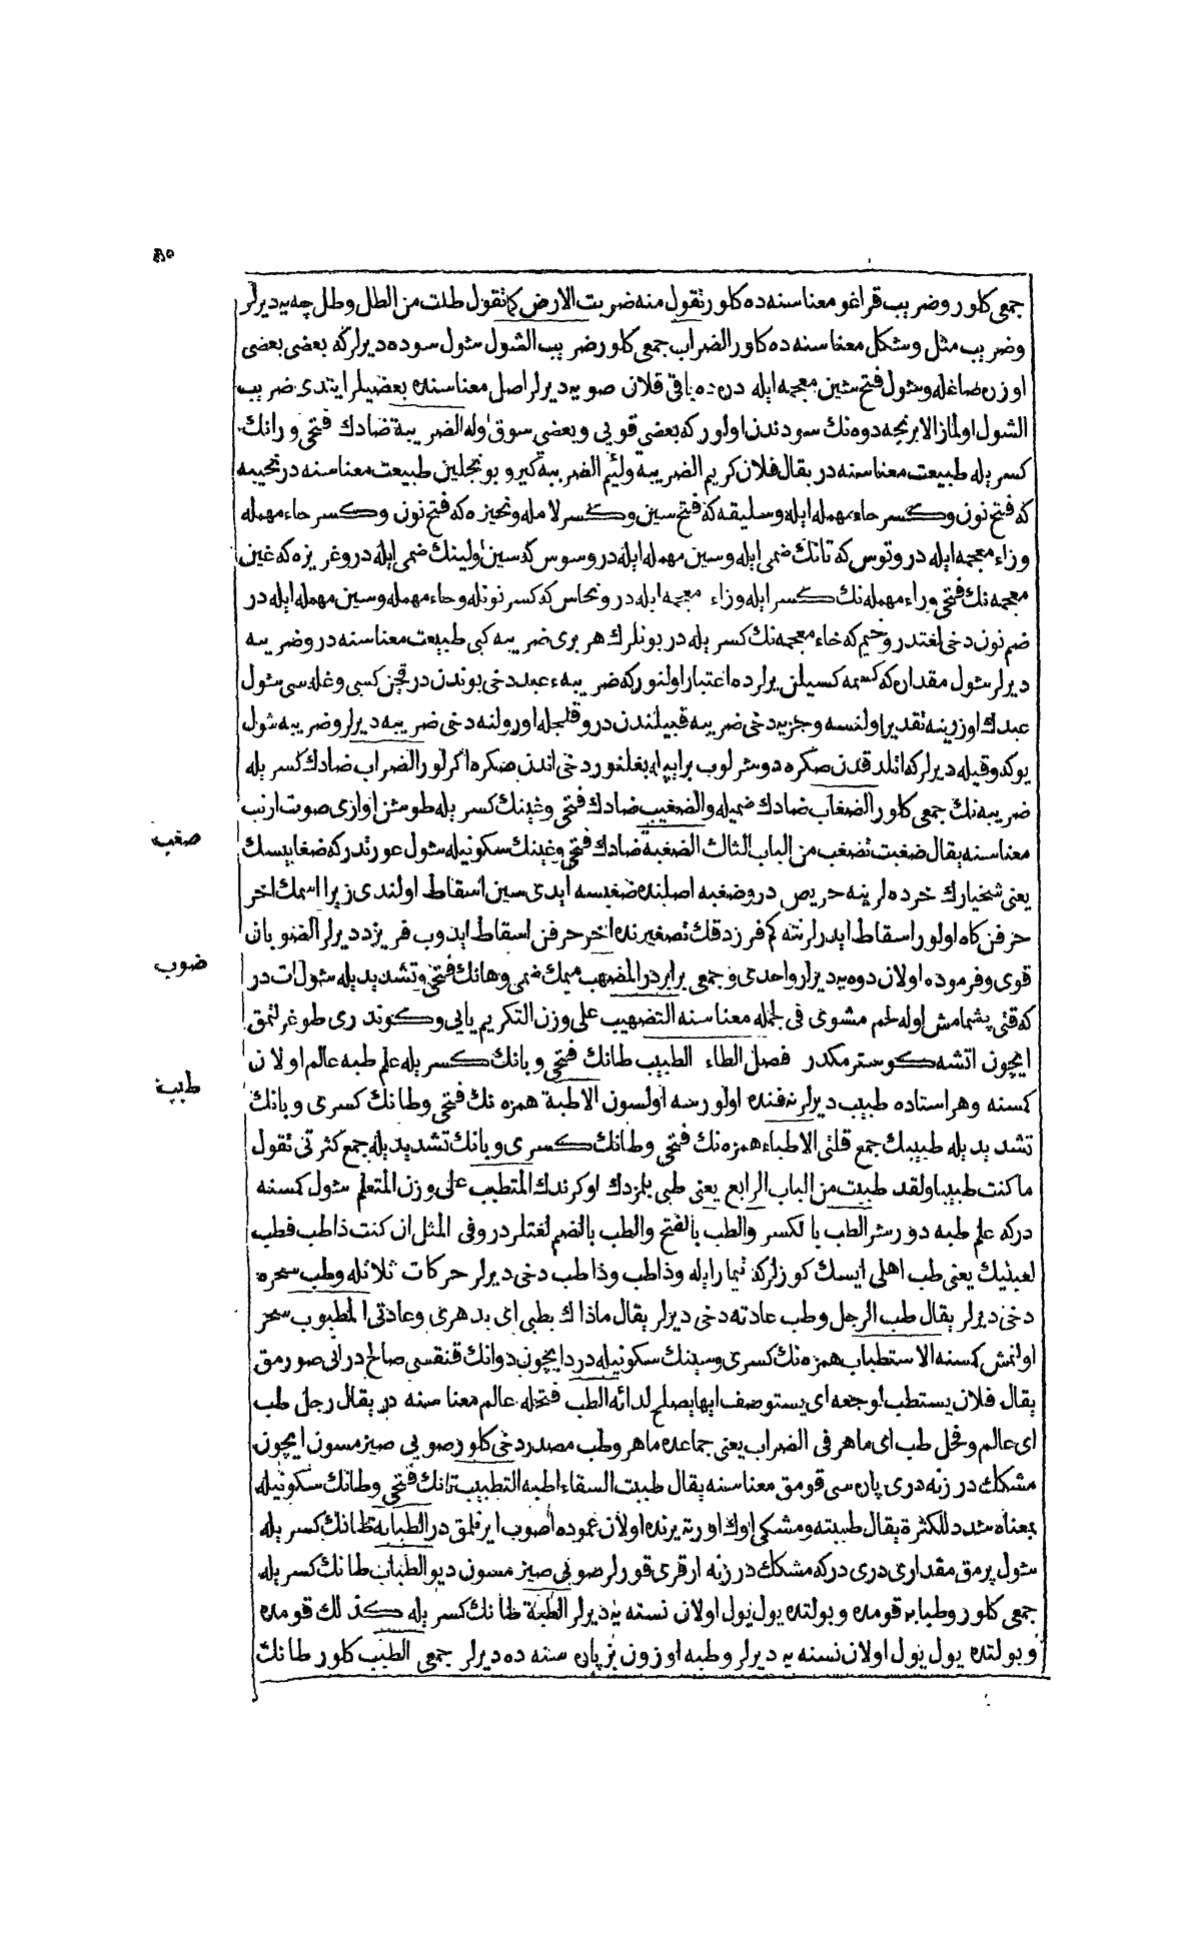 ٨٥
جمعى كلور وضريب قراغو معناسنه ده كلور تقول منه ضربت الارض كما تقول طلت من الطل وطل چه يه ديرلر
وضريب مثل وشكل معناسنه ده كلور الضراب جمعى كلور ضريب الشول شول سوده ديرلر كه بعضى بعضى
اوزره صاغله وشول فتح شين معجمه ايله دره ده باقى قلان صويه ديرلر اصل معناسنده بعضيلر ايتدى ضريب
الشول اولماز الا برنجه دوه نك سودندن اولور كه بعضى قويى وبعضى سوق اوله الضريبة ضادك فتحى ورانك
كسريله طبيعت معناسنه در يقال فلان كريم الضريبة ولئيم الضريبة كيرو بونجلين طبيعت معناسنه در نحيبه
كه فتح نون وكسر حاء مهمله ايله وسليقه كه فتح سين وكسر لامله ونحيزه كه فتح نون وكسر حاء مهمله
وزاء معجمه ايله در وتوس كه تانك ضمى ايله وسين مهمله ايله در وسوس كه سين اولينك ضمى ايله در وغريزه كه غين
معجمه نك فتحى وراء مهمله نك كسر ايله وزاء معجمه ايله در ونحاس كه كسر نونله وحاء مهمله وسين مهمله ايله در
ضم نون دخى لغتدر وخيم كه خاء معجمه نك كسريله در بونلرك هر برى ضريبه كبى طبيعت معناسنه در وضريبه
ديرلر شول مقداره كه كسمه كسيلن يرلرده اعتبار اولنور كه ضريبهء عبد دخى بوندن در قچن كسبى وغله سى شول
عبدك اوزرينه تقدير اولنسه وجزيه دخى ضريبه قبيلندن در وقلجله اورولنه دخى ضريبه ديرلر وضريبه شول
يوكه وقيله ديرلر كه انلدقدن صكره دوشرلوب برايپله بغلنور دخى اندن صكره اكرلور الضراب ضادك كسريله
ضريبه نك جمعى كلور الضغاب ضادك ضميله والضغيب ضادك فتحى وغينك كسريله طوشن اوازى صوت ارنب
معناسنه يقال ضغبت تضغب من الباب الثالث الضغبة ضادك فتحى وغينك سكونيله شول عورتدر كه ضغابيسك
يعنى شخيارك خرده لرينه حريص در وضغبه اصلنده ضغبسه ايدى سين اسقاط اولندى زيرا اسمك اخر
حرفن كاه اولور اسقاط ايدرلر نته كم فرزدقك تصغيرنده اخر حرفن اسقاط ايدوب فريزد ديرلر الضوبان
قوى وفرموده اولان دوه يه ديرلر واحدى وجمعى برابردر المضهب ميمك ضمى وهانك فتحى وتشديديله شول ات در
كه قتى پشمامش اوله لحم مشوى فى الجمله معناسنه التضهيب على وزن التكريم يايى وكوندرى طوغرلتمق
ايچون اتشه كوسترمكدر فصل الطاء الطبيب طانك فتحى وبانك كسريله علم طبه عالم اولان
كسنه وهر استاده طبيب ديرلر نه فنده اولورسه اولسون الاطبة همزه نك فتحى وطانك كسرى وبانك
تشديديله طبيبك جمع قلتى الاطباء همزه نك فتحى وطانك كسرى وبانك تشديديله جمع كثرتى تقول
ما كنت طبيبا ولقد طببت من الباب الرابع يعنى طبى بلمزدك اوكرندك المتطبب على وزن المتعلم شول كسنه
دركه علم طبه دورشر الطب بالكسر والطب بالفتح والطب بالضم لغتلردر وفى المثل ان كنت ذا طب فطب
لعينيك يعنى طب اهلى ايسك كوزلركه تيمار ايله وذا طب وذا طب دخى ديرلر حركات ثلاثله وطب سحره
دخى ديرلر يقال طب الرجل وطب عادته دخى ديرلر يقال ماذاك بطبى اى بدهرى وعادتى المطبوب سحر
اولنمش كسنه الاستطباب همزه نك كسرى وسينك سكونيله در دايچون دوانك قنقسى صالح در انى صورمق
يقال فلان يستطب لوجعه اى يستوصف ايها يصلح لدائه الطب فتحله عالم معناسنه در يقال رجل طب
اى عالم وفحل طب اى ماهر فى الضراب يعنى جماعده ماهر وطب مصدر دخى كلور صويى صيزمسون ايچون
مشكك درزنه درى پاره سى قومق معناسنه يقال طببت السقاء اطبه التطبيب تانك فتحى وطانك سكونيله
بمعناه شدد للكثرة يقال طببته ومشكى اوك اورته يرنده اولان عموده اصوب ايرغلمق در الطبابة طانك كسريله
شول پرمق مقدارى درى دركه مشكك درزنه ارقرى قورلر صويى صيزمسون ديو الطباب طانك كسريله
جمعى كلور وطبابه قومده وبولتده يول يول اولان نسنه يه ديرلر الطبة طانك كسريله كذلك قومده
وبولتده يول يول اولان نسنه يه ديرلر وطبه اوزون بز پاره سنه ده ديرلر جمعى الطبب كلور طانك
ضغب
ضوب
طبب